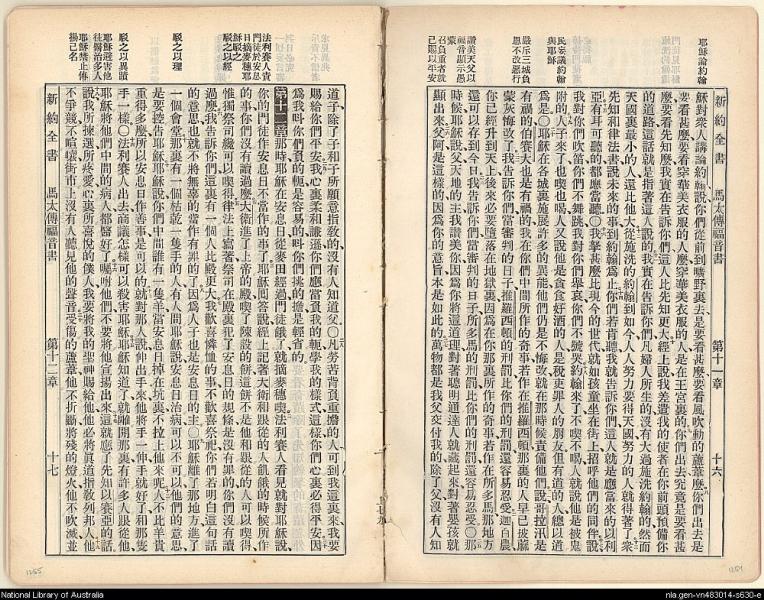 耶穌論約翰
民妄議約翰與耶穌
嚴斥三城負恩不改惡行
讚美天父以福音顯示愚蒙
召負重者就己賜以平安
新約全書 馬太傳福音書 第十一章 十六
穌對衆人講論約翰說你們從前到曠野裏去是要看甚麽要看風吹動的蘆葦麽你們出去是
要看甚麽要看穿華美衣服的人麽穿華美衣服的人是在王宮裏的你們出去究竟是要看甚
麽要看先知麽我實在告訴你們這人比先知更大經上說我差遣我的使者在你前頭預備你
的道路這話就是指著這人說的我實在告訴你們凡婦人所生的沒有大過施洗約翰的然而
天國裏最小的人還比他大從施洗的約翰到如今人人努力要得天國努力的人就得著了衆
先知和律法書說未來的事到約翰爲止你們若肯聽我就告訴你們這人就是應當來的以利
亞有耳可聽的都應當聽○我擧甚麽比現今的世代就如孩童坐在街上招呼他們的同伴說
我對你們吹笛你們不舞蹈我對你們擧哀你們不號哭約翰來了不喫不喝人就說他是被鬼
附的人子來了也喫也喝人又說他是貪食好酒的人是稅吏罪人的朋友但有道的人總以道
爲是○耶穌在各城裏施展許多的異能他們仍是不悔改就在那時候責備他們說哥拉汛是
有禍的伯賽大也是有禍的我在你們中間所作的奇事若作在推羅西頓那裏的人早已披蔴
蒙灰悔改了我告訴你們當審判的日子推羅西頓的刑罰比你們的刑罰還容易忍受迦百農
你已經升到天上後來必要墮落在地獄裏因爲在你那裏所作的奇事若作在所多馬那地方
還可以存到今日我告訴你們當審判的日子所多馬的刑罰比你們的刑罰還容易忍受○那
時候耶穌說父天地的主我讚美你因爲你將這道理對著聰明通達人就藏起來對著嬰孩就
顯出來父阿是這樣的因爲你的意旨本是如此的萬物都是我父交付我的除了父沒有人知
法利賽人責門徒於安息日摘麥穗耶穌駁之
駁之以經
駁之以理
駁之以異蹟
耶穌避害他往醫治多人
耶穌禁止傳揚己名
道子除了子和子所願意指敎的沒有人知道父○凡勞苦背負重擔的人可到我這裏來我要
賜給你們平安我心裏柔和謙遜你們應當負我的軛學我的樣式這樣你們心裏必得平安因
爲我叫你們負的軛是容易的叫你們挑的擔是輕省的
第十二章那時耶穌在安息日從麥田經過門徒餓了就摘麥穗喫法利賽人看見就對耶穌說
你的門徒作安息日不當作的事了耶穌回答說經上記著大衛和跟從的人飢餓的時候所作
的事你們沒有讀過麽大衛進了上帝的殿喫了陳設的餅這餅不是他和跟從的人可以喫得
惟獨祭司纔可以喫得律法上寫著祭司在殿裏犯了安息日的規條是沒有罪的你們沒有讀
過麽我告訴你們這裏有一個人比殿更大我歡喜憐恤的事不歡喜祭祀你們若明白這句話
的意思也就不將無辜的當作有罪的了因爲人子也是安息日的主○耶穌離了那地方進了
一個會堂那裏有一個枯乾一隻手的人有人問耶穌說安息日治病可以不可以他們的意思
是要控告耶穌耶穌說你們中間誰有一隻羊當安息日掉在坑裏不拉上他來呢人不比羊貴
重得多麽所以安息日作善事是可以的就對那人說伸出手來他將手一伸手就好了和那隻
手一樣○法利賽人出去商議怎樣可以殺害耶穌耶穌知道了就離開那裏有許多人跟從他
耶穌將他們中間的病人都醫好了囑咐他們不要將他宣揚出來這就應了先知以賽亞的話
說我所揀選所疼愛心裏所喜悅的僕人我要將我的聖神賜給他他必將眞道指敎列邦人他
不爭競不喧嚷街市上沒有人聽見他的聲音受傷的蘆葦他不折斷將殘的燈火他不吹滅並
新約全書 馬太傳福音書 第十二章 十七
1255
1254
National Library of Australia
nla.gen-vn483014-s630-e